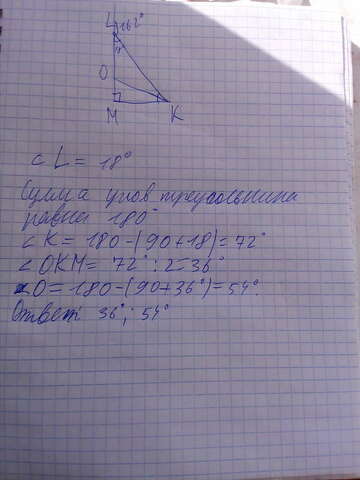 L 162°
O
M K
∠ L = 18°
Сумма углов треугольника
равна 180°
∠ K = 180-(90+18)=72°
∠ OKM = 72° : 2=36°
∠O = 180-(90+36°)=54°.
Ответ 36°; 54°